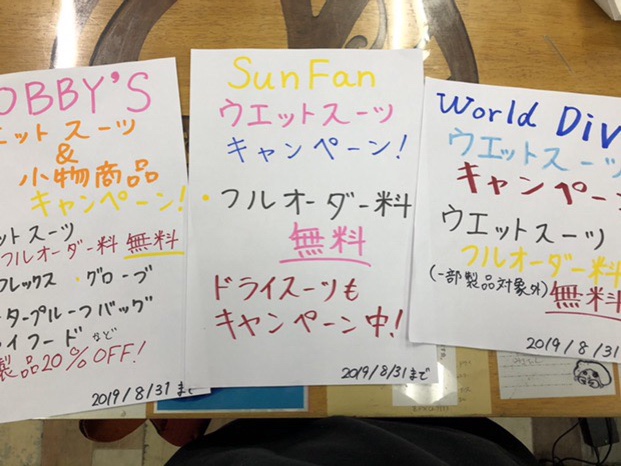 OBBY'S
エットスーツ
&
小物商品
キャンペーン!
ットスーツ
フルオーダー料 無料
フレックス・グローブ
タープルーフバッグ
イフード など
製品20%OFF!
2019/8/31まで
SunFan
ウエットスーツ
キャンペーン!
・フルオーダー料
無料
ドライスーツも
キャンペーン中!
2019/8/31まで
World Div
ウエットスーツ
キャンペーン
ウエットスーツ
フルオーダー料
(一部製品対象外) 無料
2019/8/31